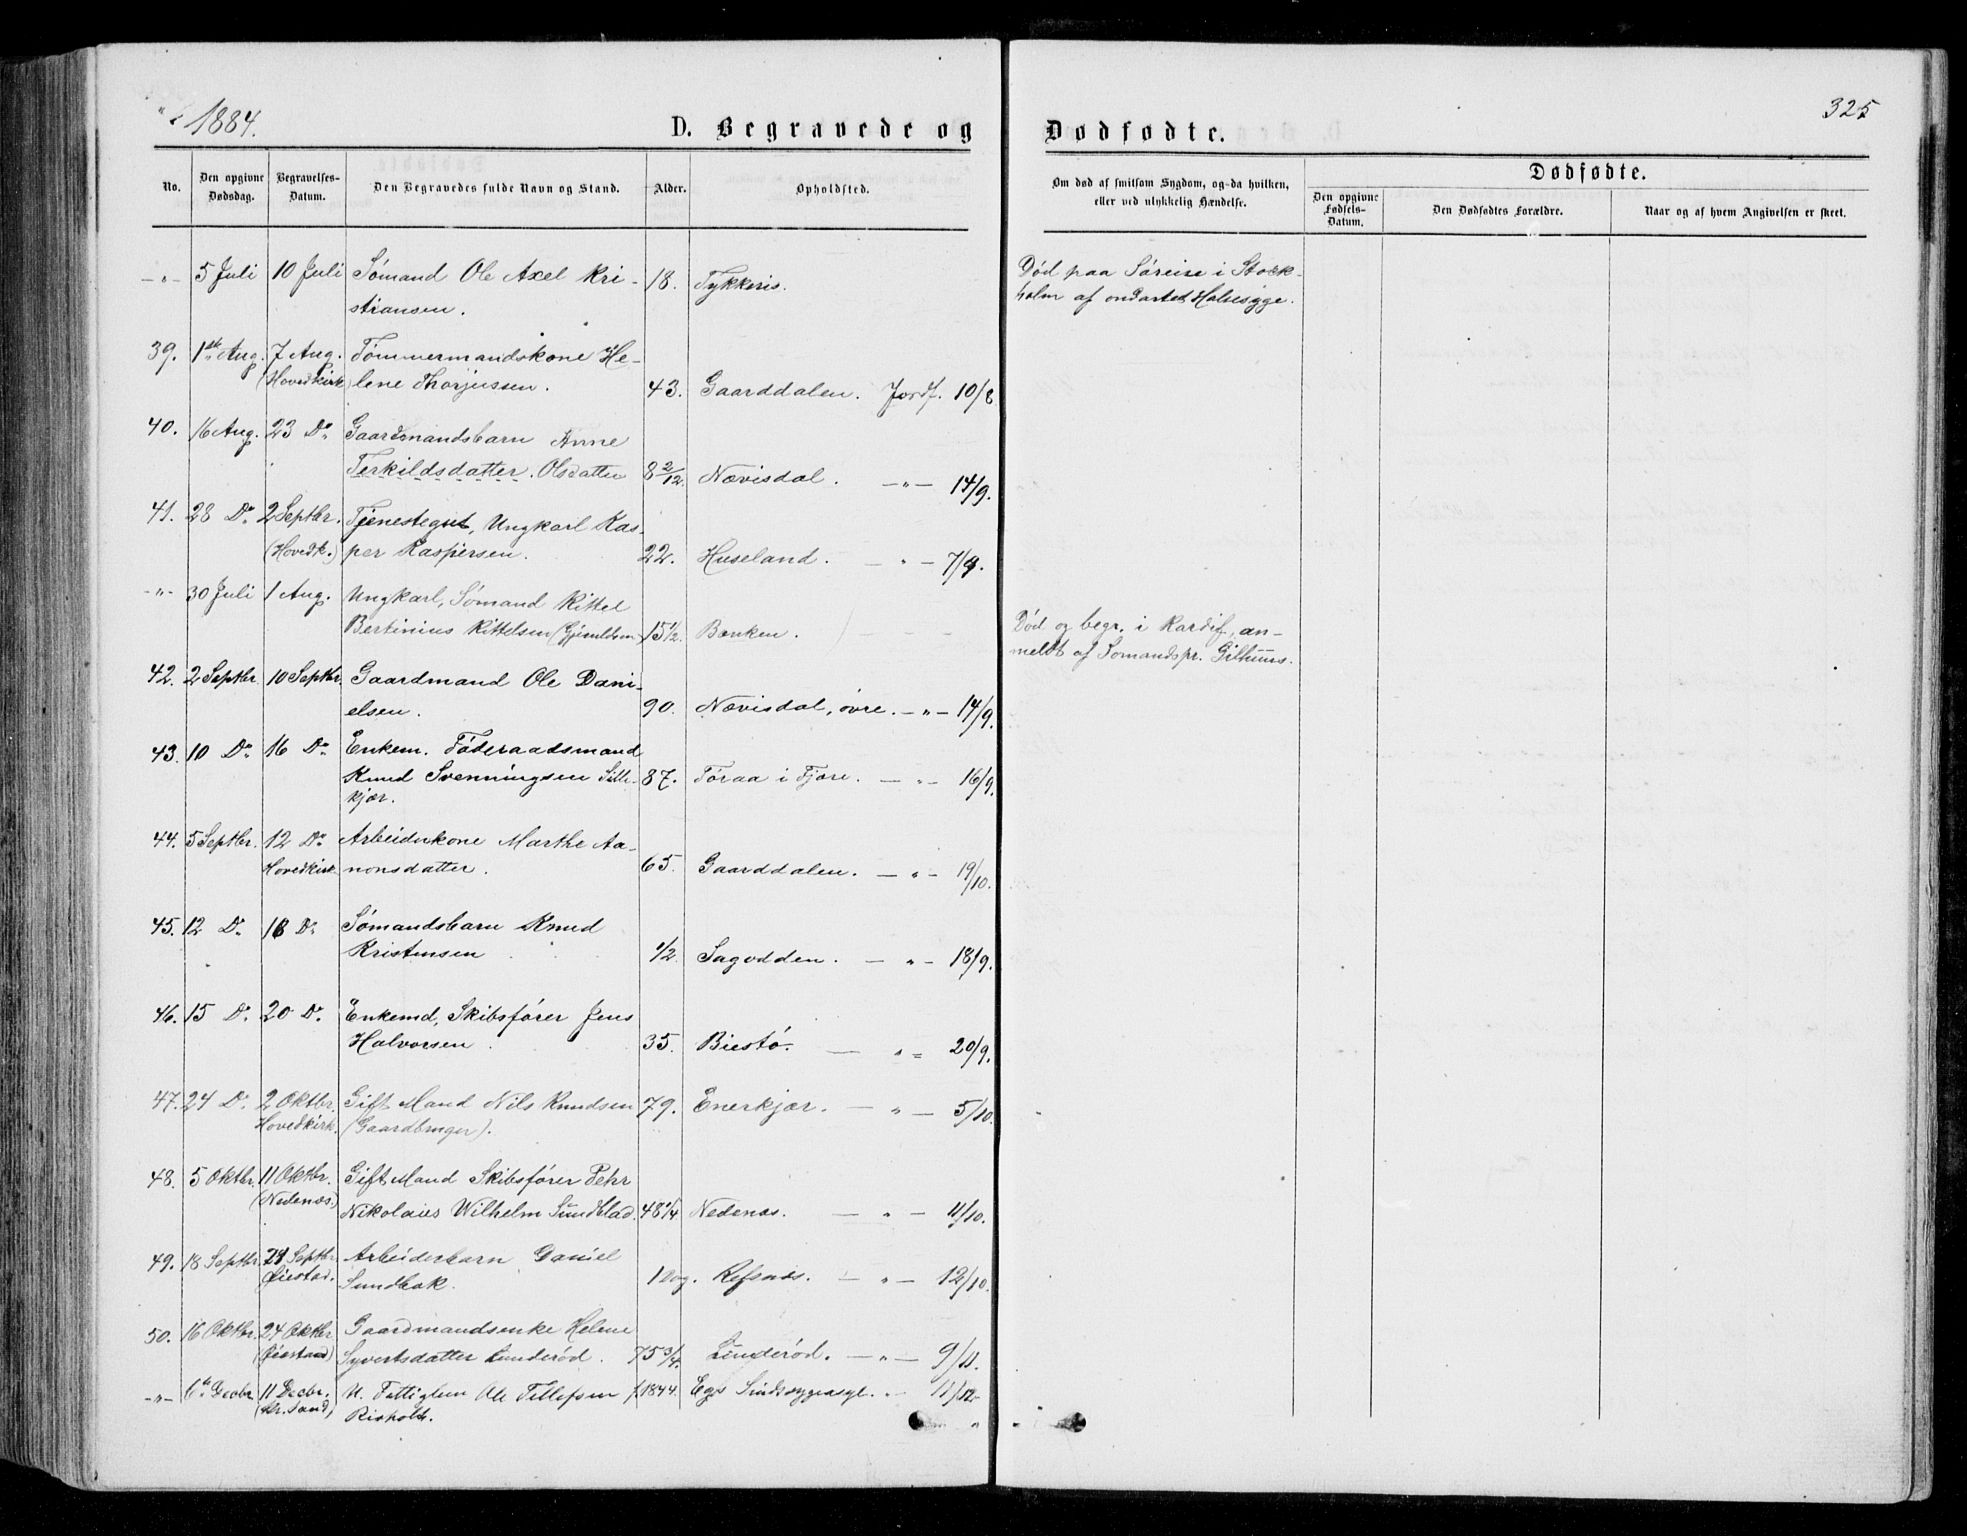 1884.
D. Begravede og Dødfødte.
325
No. Den opgivne Dødsdag. Begravelses-Datum. Den Begravedes fulde Navn og Stand. Alder. Opholdsted.
Om død af smitsom Sygdom, og da hvilken, eller ved ulykkelig Hændelse.
Dødfødte.
Den opgivne Fødsels-Datum. Den Dødfødtes Forældre. Naar og af hvem Angivelsen er skeet.
-"- 5 Juli 10 Juli Sømand Ole Axel Kri- 18. Tykkeris. Død paa Søreise i Stock-
stiansen. holm af ondartet Halssyge.
39. 1ste Aug. 7 Aug. Tømmermandskone He-
(Hovedkirk) lene Thorjussen. 43. Gaarddalen. Jordf. 10/8
40. 16 Aug. 23 Do Gaardmandsbarn Anne
Terkildsdatter. Olsdatter 8 2/12. Nævisdal. -"- 14/9.
41. 28 Do 2 Septbr. Tjenestegut, Ungkarl Kas-
(Hovedk.) per Kaspersen. 22. Huseland. -"- 7/9.
-"- 30 Juli 1 Aug. Ungkarl, Sømand Kittel
Bertinius Kittelsen 15 1/2. Banken. Død og begr. i Kardif, an-
meldt af Sømandspr. Gilhuus.
42. 2 Septbr. 10 Septbr. Gaardmand Ole Dani-
elsen. 90. Nævisdal, øvre. -"- 14/9.
43. 10 Do 16 Do Enkem. Føderaadsmand
Knud Svenningsen Sille- 87. Føraa i Fjære. -"- 16/9.
kjær.
44. 5 Septbr. 12 Do Arbeiderkone Marthe Aa-
Hovedkirk. nonsdatter. 65. Gaarddalen. -"- 19/10.
45. 12 Do 18 Do Sømandsbarn Knud
Kristensen 1/2. Sagodden. -"- 18/9.
46. 15 Do 20 Do Enkemd, Skibsfører Jens
Halvorsen. 35. Biestø. -"- 20/9.
47. 24 D. 2 Oktbr. Gift Mand Nils Knudsen 79. Enerkjær. -"- 5/10.
Hovedkirk. (Gaardbruger).
48. 5 Oktbr. 11 Oktbr. Gift Mand Skibsfører Pehr
(Nedenæs.) Nikolaies Wilhelm Sundblad 48 1/4 Nedenæs. -"- 11/10.
49. 18 Septbr. 28 Septbr. Arbeiderbarn Daniel
Øiestad. Sundbak. 1 Dag. Refsnæs. -"- 12/10.
50. 16 Oktbr. 24 Oktbr. Gaardmandsenke Helene
(Øiestad) Syvertsdatter Lunderød. 75 3/4. Lunderød. -"- 9/11.
-"- 6te Decbr. 11 Decbr. U. Fattiglem Ole Tellefsen f. 1844. Egs Sindssygeasyl. -"- 11/12
(Kr. Sand) Risholt.